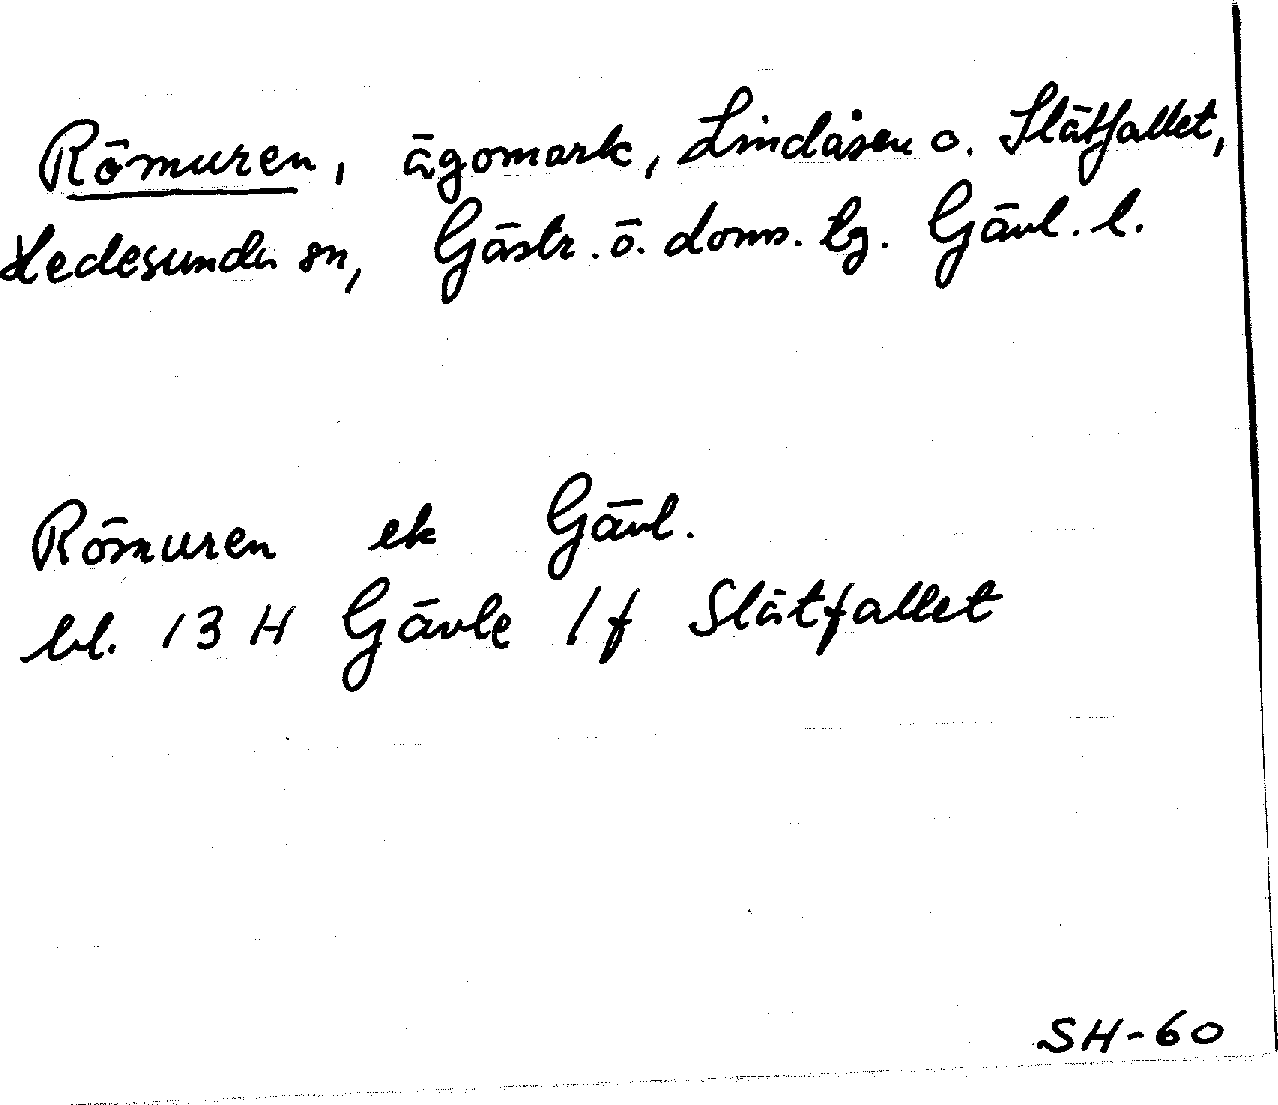 Römuren, ägomark, Lindåsen o. Slätfallet,
Hedesunda sn, Gästr. ö. doms. lg. Gävl. l.
Römuren ek Gävl.
bl. 13 H Gävle 1 f Slätfallet
SH-60